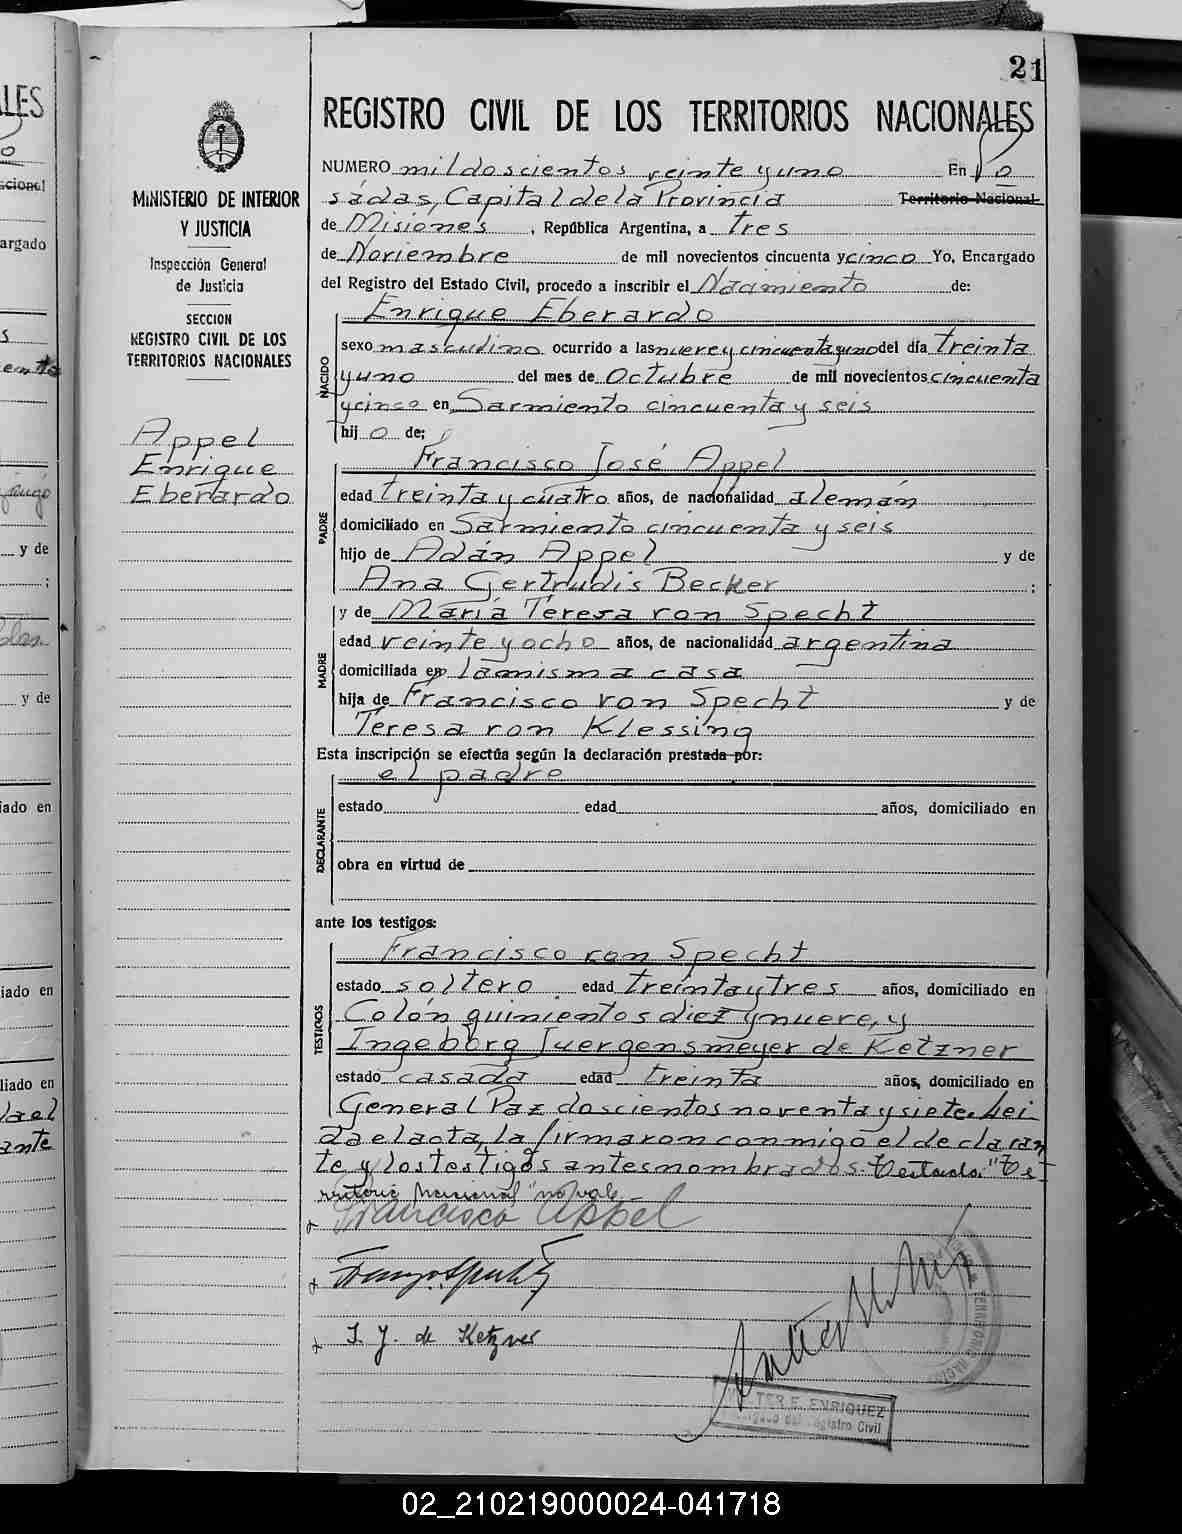 21
REGISTRO CIVIL DE LOS TERRITORIOS NACIONALES
MINISTERIO DE INTERIOR
Y JUSTICIA
Inspección General
de Justicia
SECCION
REGISTRO CIVIL DE LOS
TERRITORIOS NACIONALES
Appel
Enrique
Eberardo
NUMERO mil doscientos veinte y uno En Po
sádas, Capital de la Provincia Territorio Nacional
de Misiones, República Argentina, a tres
de Noviembre de mil novecientos cincuenta y cinco Yo, Encargado
del Registro del Estado Civil, procedo a inscribir el Nacimiento de:
NACIDO
Enrique Eberardo
sexo masculino ocurrido a las nueve y cincuenta y uno del día treinta
y uno del mes de Octubre de mil novecientos cincuenta
y cinco en Sarmiento cincuenta y seis
hijo de;
PADRE
Francisco José Appel
edad treinta y cuatro años, de nacionalidad alemán
domiciliado en Sarmiento cincuenta y seis
hijo de Adán Appel y de
Ana Gertrudis Becker ;
MADRE
y de María Teresa von Specht
edad veinte y ocho años, de nacionalidad argentina
domiciliada en la misma casa
hija de Francisco von Specht y de
Teresa von Klessing
Esta inscripción se efectúa según la declaración prestada por:
DECLARANTE
el padre
estado edad años, domiciliado en
obra en virtud de
ante los testigos:
TESTIGOS
Francisco von Specht
estado soltero edad treinta y tres años, domiciliado en
Colón quinientos diez y nueve, y
Ingeborg Juergensmeyer de Ketzner
estado casada edad treinta años, domiciliado en
General Paz doscientos noventa y siete. Lei
da el acta, la firmaron conmigo el declaran
te y los testigos antes nombrados. Testado: "Te
rritorio Nacional" no vale
Francisco Appel
I. J. de Ketzner
WALTER E. ENRIQUEZ
Encargado del Registro Civil
02_210219000024-041718